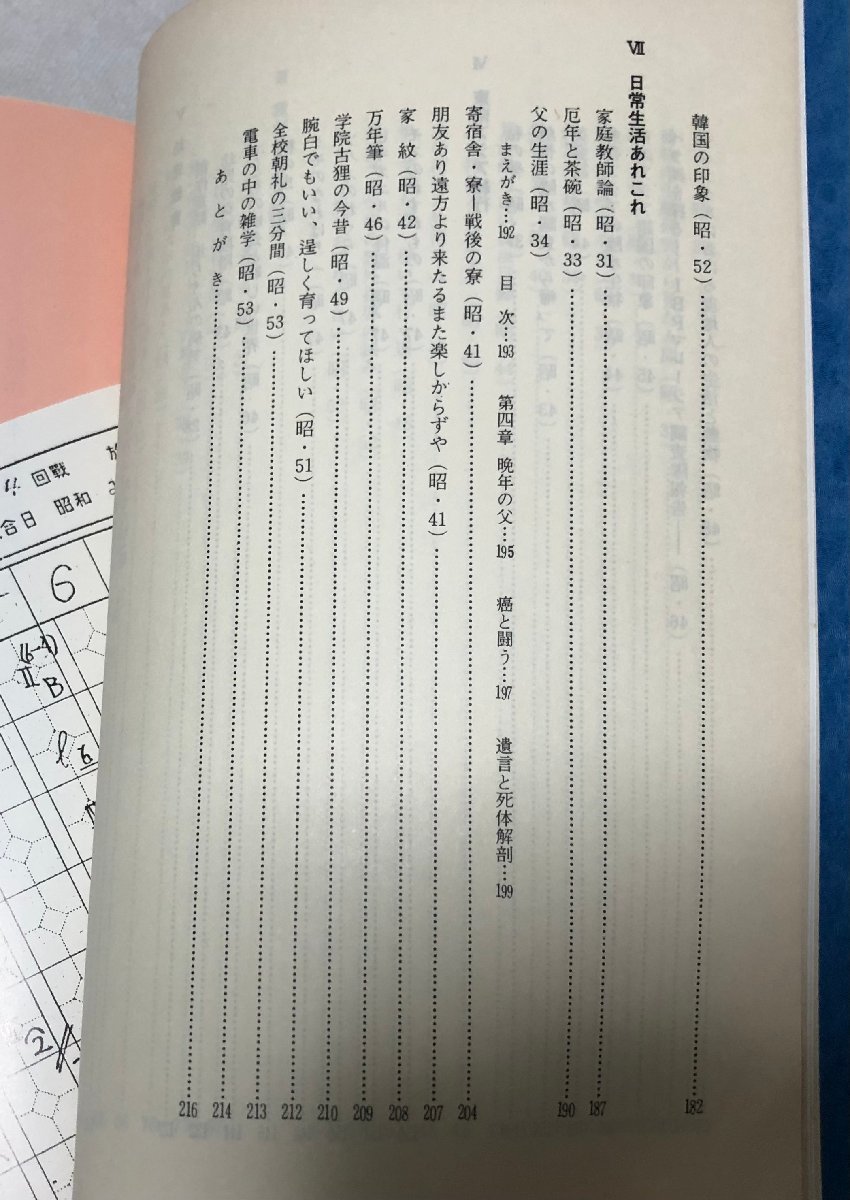 韓国の印象（昭・52）……182
Ⅶ 日常生活あれこれ
家庭教師論（昭・31）……187
厄年と茶碗（昭・33）……190
父の生涯（昭・34）
まえがき…192 目次…193 第四章 晩年の父…195 癌と闘う…197 遺言と死体解剖…199
寄宿舎・寮―戦後の寮（昭・41）……204
朋友あり遠方より来たるまた楽しからずや（昭・41）……207
家紋（昭・42）……208
万年筆（昭・46）……209
学院古狸の今昔（昭・49）……210
腕白でもいい、逞しく育ってほしい（昭・51）……212
全校朝礼の三分間（昭・53）……213
電車の中の雑学（昭・53）……214
あとがき……216
回戦
合日 昭和
6
(6-4)
II B
2